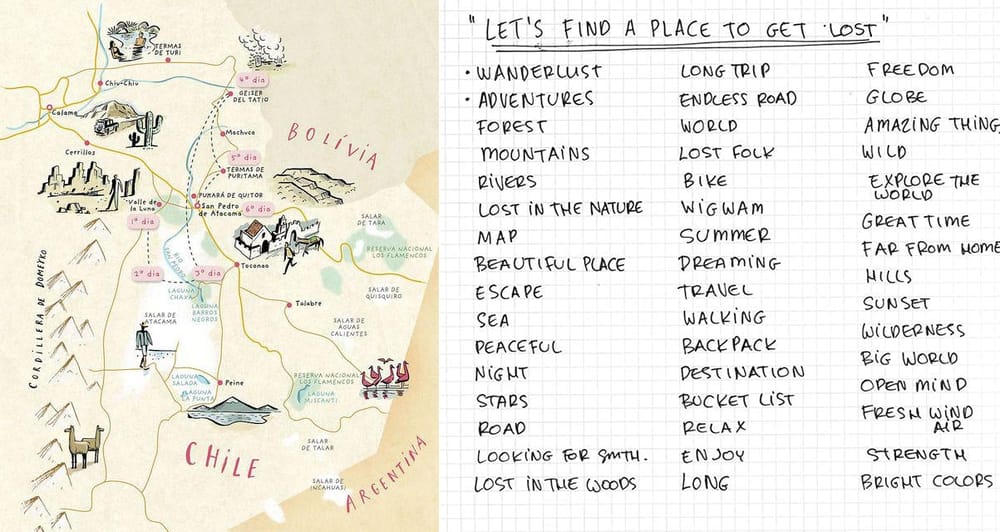 TERMAS
DE TURI
Chiu-Chiu
4º dia
GEISER
DEL TATIO
Calama
Machuca
BOLÍVIA
Cerrillos
5º dia
TERMAS DE
PURITAMA
PUKARÁ DE QUITOR
Valle de
la Luna
San Pedro
de Atacama
6º dia
1º dia
SALAR
DE TARA
RESERVA NACIONAL
LOS FLAMENCOS
RIO
SAN PEDRO
Toconao
2º dia
3º dia
LAGUNA
CHAXA
LAGUNA
BARROS
NEGROS
SALAR DE
QUISQUIRO
Talabre
CORDILLERA DE DOMEYKO
SALAR DE
ATACAMA
SALAR DE
AGUAS
CALIENTES
LAGUNA
SALADA
LAGUNA
LA PUNTA
Peine
RESERVA NACIONAL
LOS FLAMENCOS
LAGUNA
MISCANTI
CHILE
SALAR
DE TALAR
SALAR DE
INCAHUASI
ARGENTINA
"LET'S FIND A PLACE TO GET LOST"
• WANDERLUST
• ADVENTURES
FOREST
MOUNTAINS
RIVERS
LOST IN THE NATURE
MAP
BEAUTIFUL PLACE
ESCAPE
SEA
PEACEFUL
NIGHT
STARS
ROAD
LOOKING FOR SMTH.
LOST IN THE WOODS
LONG TRIP
ENDLESS ROAD
WORLD
LOST FOLK
BIKE
WIGWAM
SUMMER
DREAMING
TRAVEL
WALKING
BACKPACK
DESTINATION
BUCKET LIST
RELAX
ENJOY
LONG
FREEDOM
GLOBE
AMAZING THING
WILD
EXPLORE THE
WORLD
GREAT TIME
FAR FROM HOME
HILLS
SUNSET
WILDERNESS
BIG WORLD
OPEN MIND
FRESH WIND
AIR
STRENGTH
BRIGHT COLORS